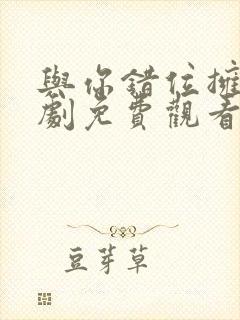 與你錯位擁
劇免費觀看
豆芽草